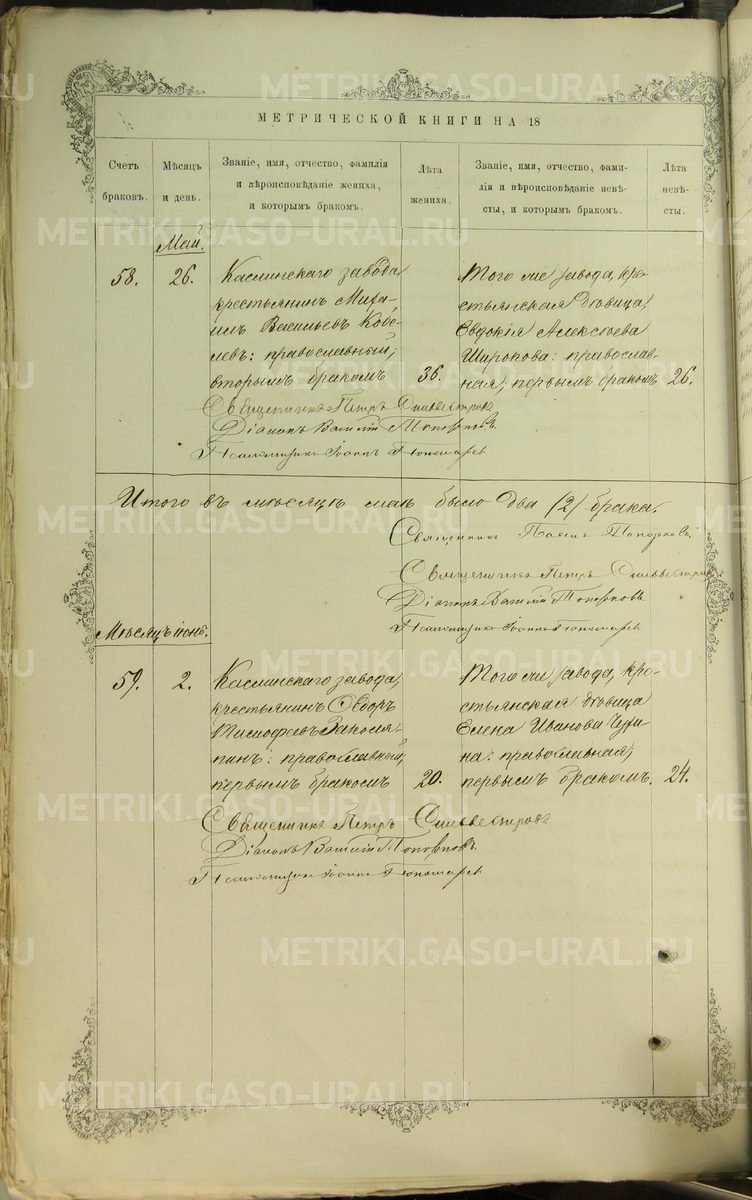 МЕТРИЧЕСКОЙ КНИГИ НА 18
Счетъ браковъ.
Мѣсяцъ и день.
Званіе, имя, отчество, фамилія и вѣроисповѣданіе жениха, и которымъ бракомъ.
Лѣта жениха.
Званіе, имя, отчество, фамилія и вѣроисповѣданіе невѣсты, и которымъ бракомъ.
Лѣта невѣсты.
Май.
58.
26.
Каслинскаго завода
крестьянинъ Миха-
илъ Васильевъ Кобе-
левъ: православный,
вторымъ бракомъ
36.
Того же завода, кре-
стьянская дѣвица,
Евдокія Алексѣева
Широкова: православ-
ная, первымъ бракомъ
26.
Священникъ Петръ Сильвестровъ
Діаконъ Василій Топорковъ.
Псаломщикъ Іоаннъ
Итого въ мѣсяцѣ маѣ было два (2) брака.
Священникъ Топорковъ
Священникъ Петръ Сильвестровъ
Діаконъ Василій Топорковъ
Псаломщикъ Іоаннъ
Мѣсяцъ іюнь.
59.
2.
Каслинскаго завода,
крестьянинъ Ѳедоръ
Тимофеевъ
: православный,
первымъ бракомъ
20.
Того же завода, кре-
стьянская дѣвица
Елена Иванова
на: православная,
первымъ бракомъ.
24.
Священникъ Петръ Сильвестровъ
Діаконъ Василій Топорковъ.
Псаломщикъ Іоаннъ
METRIKI.GASO-URAL.RU